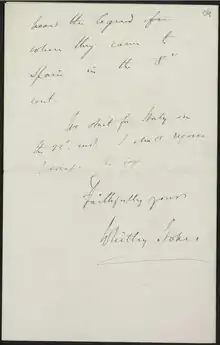 heard the legend from
when they came to
Spain in the 8th
cent.
We start for Italy in
the 25th inst I shall
Faithfully yours
Whitley Stokes.